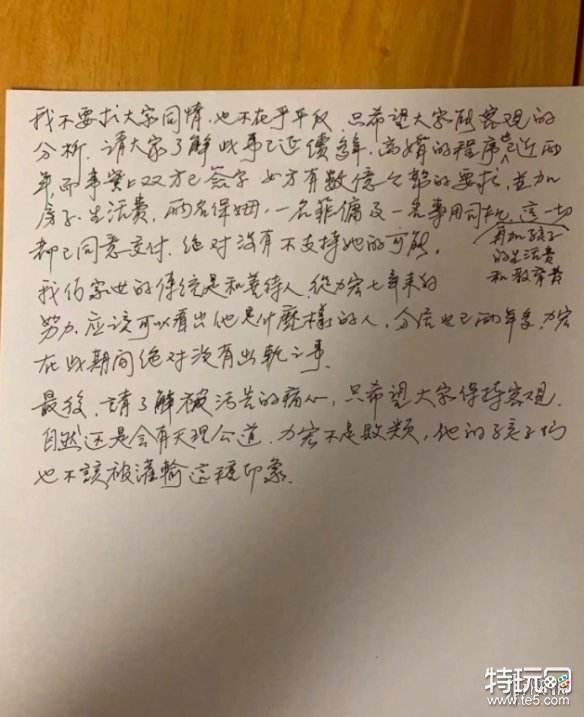 我不要求大家同情,也不在乎平反,只希望大家能客观的
分析.请大家了解此事已延續多年.离婚的程序已近两
年,而事实上双方已签字.女方有数億台幣的要求,並加
房子.生活费,两名保姆,一名菲傭及一名專用司机.這一切
再加孩子
的生活费
和教育费
都已同意交付.绝对没有不支持她的可能.
我们家世的傳统是和善待人.從力宏七年来的
努力.应該可以看出他是什麼樣的人.分居也已两年多.力宏
在此期间绝对没有出軌之事.
最後.請了解被污告的痛心,只希望大家保持客观.
自然还是会有天理公道.力宏不是敗類,他的孩子们
也不該被灌輸這種印象.
特玩网
www.te5.com